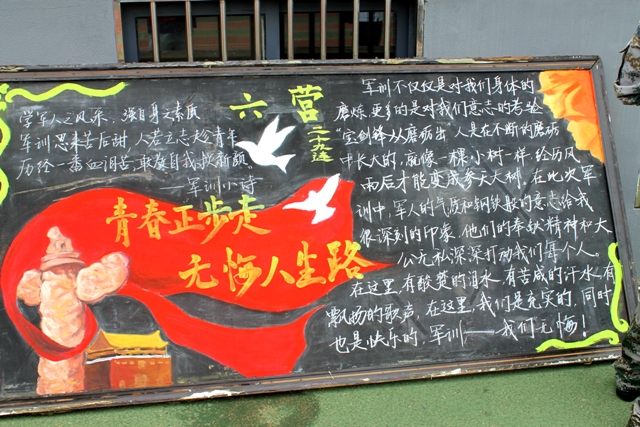 学军人之风采，强自身之素质
军训思来苦后甜，人若立志趁青年
历经一番血泪苦，敢教自我换新颜。
——军训小诗
六营
二十九连
青春正步走
无悔人生路
军训不仅仅是对我们身体的
磨炼，更多的是对我们意志的考验
"宝剑锋从磨砺出"，人是在不断的磨砺
中长大的，就像一棵小树一样，经历风
雨后才能变成参天大树，在此次军
训中，军人的气质和钢铁般的意志给我
很深刻的印象，他们的奉献精神和大
公无私深深打动我们每个人。
在这里，有酸楚的泪水，有苦咸的汗水，有
飘扬的歌声，在这里，我们是充实的，同时
也是快乐的，军训——我们无悔！